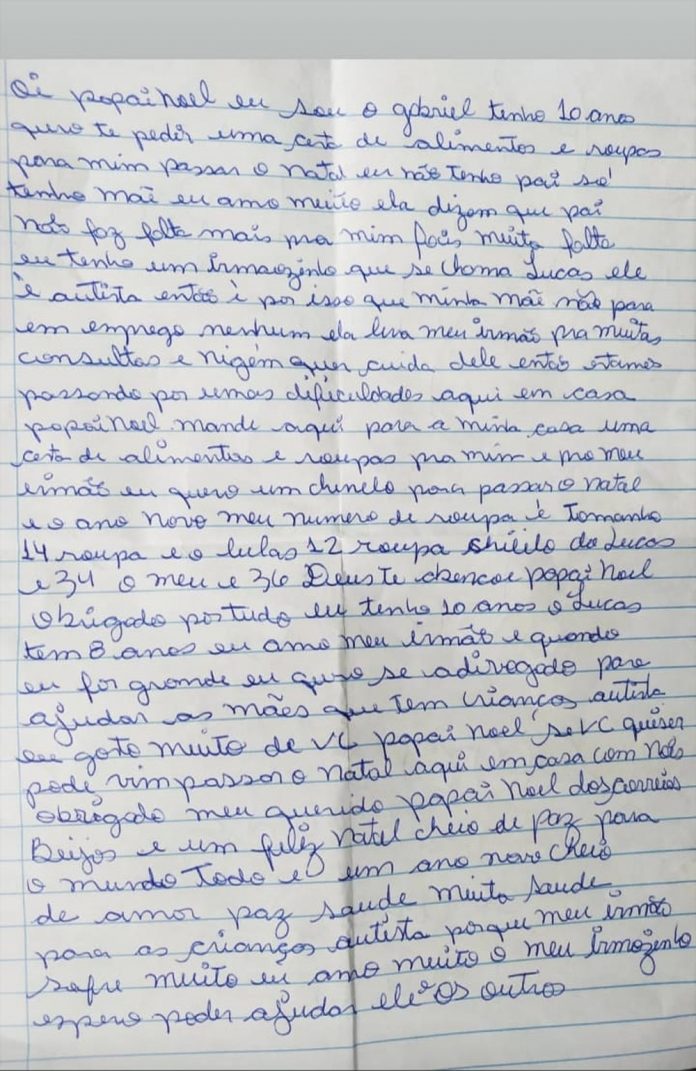 Oi papai noel eu sou o gabriel tenho 10 anos
quro te pedir uma certa de alimentos e roupas
para mim passar o natal eu não tenho pai só
tenho mãe eu amo muito ela dizem que pai
não faz falta mais pra mim fais muita falta
eu tenho um irmaozinho que se chama Lucas ele
è autista então è por isso que minha mãe não para
em emprego nenhum ela leva meu irmão pra muitas
consultas e nigém quer cuida dele então estamos
passando por umas dificuldades aqui em casa
papai noel mande aqui para a minha casa uma
certa de alimentos e roupas pra mim e pro meu
irmão eu quero um chinelo para passar o natal
e o ano novo meu numero de roupa è Tamanho
14 roupa e o lulas 12 roupa do Lucas
e 34 o meu e 36 Deus te abençoe papai noel
obrigado por tudo eu tenho 10 anos o Lucas
tem 8 anos eu amo meu irmão e quando
eu for grande eu quro se adivogado para
ajudar as mães que tem crianças autista
eu goto muito de VC papai noel se VC quiser
pode vim passar o natal aqui em casa com nós
obrigado meu querido papai noel dos correios
Beijos e um feliz natal cheio de paz para
o mundo Todo e um ano novo cheio
de amor paz saude muita saude
para as crianças autista porque meu irmão
sofre muito eu amo muito o meu irmozinho
espero poder ajudar ele e os outros